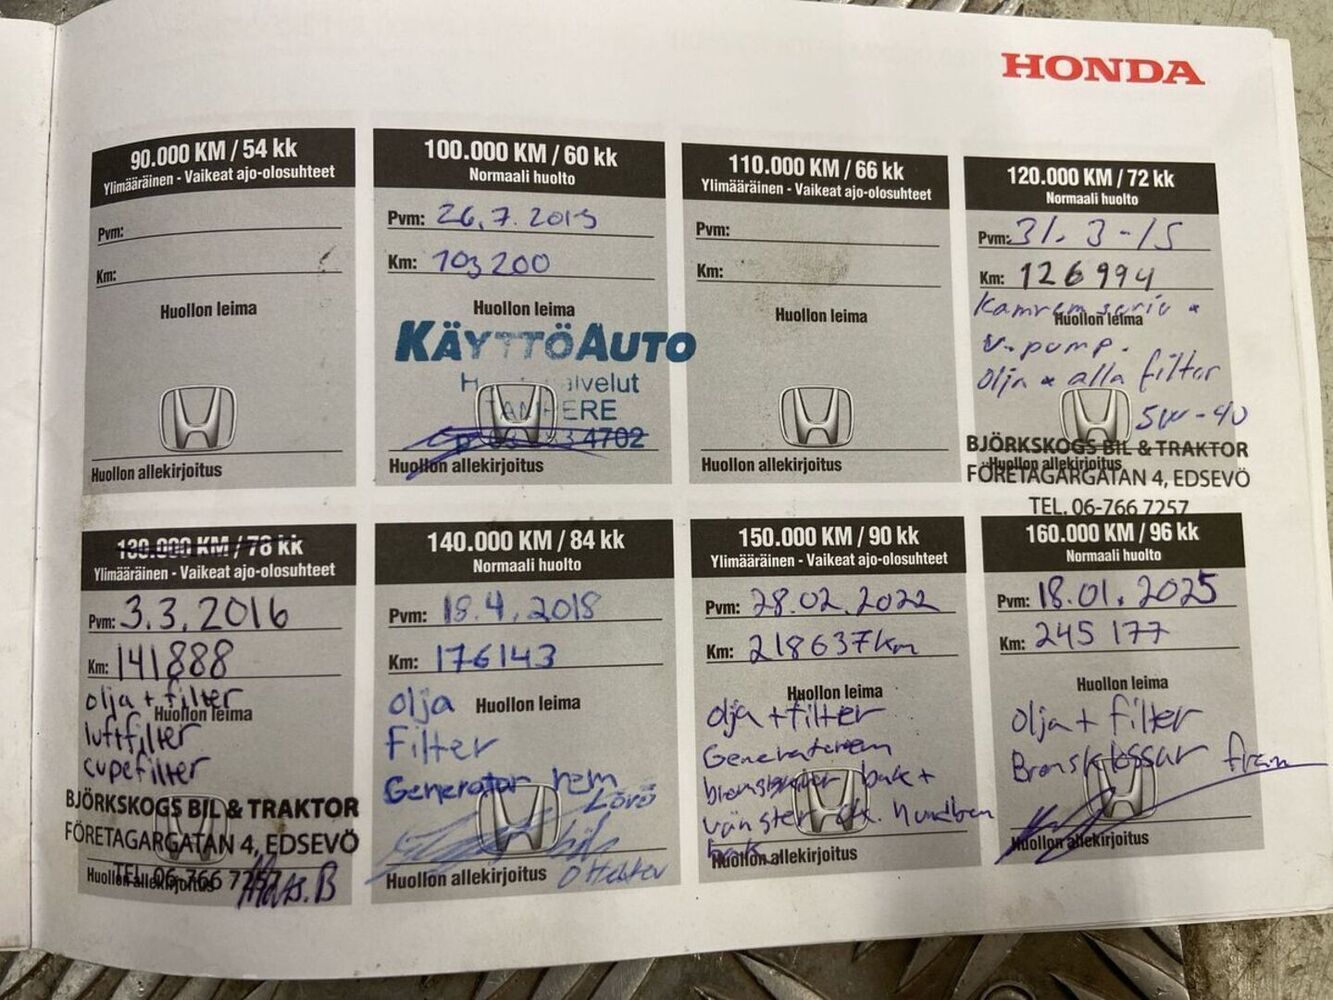 HONDA
90.000 KM / 54 kk
Ylimääräinen - Vaikeat ajo-olosuhteet
Pvm:
Km:
Huollon leima
Huollon allekirjoitus
100.000 KM / 60 kk
Normaali huolto
Pvm: 26.7.2013
Km: 103200
Huollon leima
KÄYTTÖAUTO
4702
Huollon allekirjoitus
110.000 KM / 66 kk
Ylimääräinen - Vaikeat ajo-olosuhteet
Pvm:
Km:
Huollon leima
Huollon allekirjoitus
120.000 KM / 72 kk
Normaali huolto
Pvm: 31.3-15
Km: 126994
Huollon leima
v.pump.
olja & alla filter
5W-40
BJÖRKSKOGS BIL & TRAKTOR
Huollon allekirjoitus
FÖRETAGARGATAN 4, EDSEVÖ
TEL. 06-766 7257
130.000 KM / 78 kk
Ylimääräinen - Vaikeat ajo-olosuhteet
Pvm: 3.3.2016
Km: 141888
olja + filter
Huollon leima
luftfilter
cupefilter
BJÖRKSKOGS BIL & TRAKTOR
FÖRETAGARGATAN 4, EDSEVÖ
TEL. 06-766 7257
Huollon allekirjoitus
140.000 KM / 84 kk
Normaali huolto
Pvm: 18.4.2018
Km: 176143
olja
Huollon leima
Filter
Generator rem
Huollon allekirjoitus
150.000 KM / 90 kk
Ylimääräinen - Vaikeat ajo-olosuhteet
Pvm: 28.02.2022
Km: 218637km
Huollon leima
olja + filter
Generatorrem
bak +
vänster
bak
Huollon allekirjoitus
160.000 KM / 96 kk
Normaali huolto
Pvm: 18.01.2025
Km: 245 177
Huollon leima
Olja + filter
Bromsklossar fram
Huollon allekirjoitus